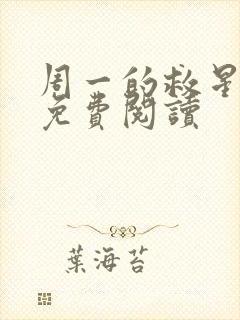 周一的救星
免費閱讀
葉海苔